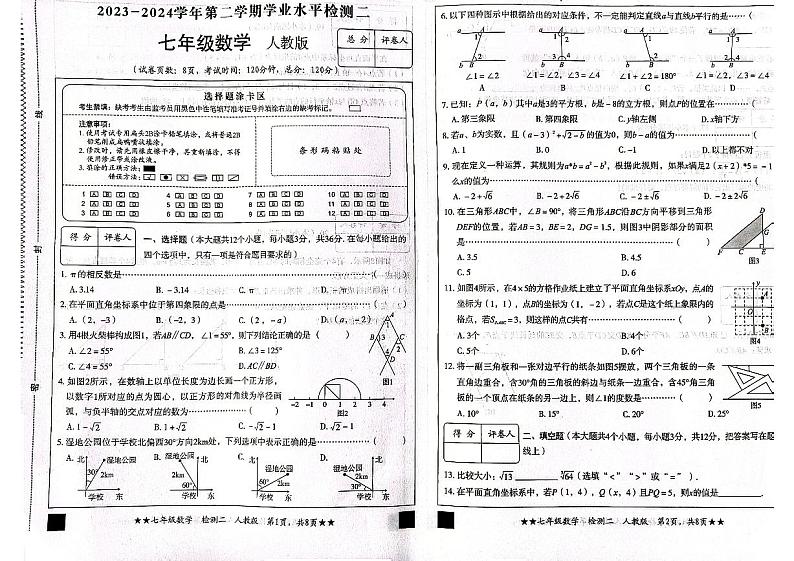 2023-2024学年第二学期学业水平检测二
七年级数学 人教版
总 分 评卷人
(试卷页数:8页,考试时间:120分钟,总分:120分)
选择题涂卡区
考生禁填:缺考考生由监考员用黑色中性笔填写准考证号并填涂右边的缺考标记。
注意事项:
1.使用考试专用扁头2B涂卡铅笔填涂,或将普通2B
铅笔削成扁鸭嘴状填涂。
2.修改时,请先用橡皮擦干净,若重新填涂,不得
使用修正带或涂改液。
3.填涂的正确方法:
错误方法:
条形码粘贴处
1 A B C D 4 A B C D 7 A B C D 10 A B C D
2 A B C D 5 A B C D 8 A B C D 11 A B C D
3 A B C D 6 A B C D 9 A B C D 12 A B C D
得 分 评卷人
一、选择题(本大题共12个小题,每小题3分,共36分.在每小题给出的
四个选项中,只有一项是符合题目要求的)
1. π的相反数是……( )
A. 3.14 B. -3.14 C. π D. -π
2. 在平面直角坐标系中位于第四象限的点是……( )
A.(2,-3) B.(-2,3) C.(2,-a) D.(a,-2)
3. 用4根火柴棒构成图1,若AB∥CD,∠1=55°,则下列结论正确的是( )
A. ∠2=55° B. ∠3=125°
C. ∠4=55° D. AC∥BD
图1
4. 如图2所示,在数轴上以单位长度为边长画一个正方形,
以数字1所对应的点为圆心,以正方形的对角线为半径画
弧,与负半轴的交点对应的数为……( )
-2 -1 0 1 2 3 4
图2
A. 1-√2 B. 1+√2 C. -√2 D. √2-1
5. 湿地公园位于学校北偏西30°方向2km处,下列选项中表示正确的是……( )
A. B. C. D.
北 湿地公园 30° 2km 学校 东
湿地公园 北 2km 60° 学校 东
湿地公园 北 2km 60° 学校 东
湿地公园 北 2km 30° 学校 东
★★七年级数学 检测二 人教版 第1页,共8页★★
6. 以下四种图示中根据给出的对应条件,不一定能判定直线a与直线b平行的是……( )
∠1=∠2 ∠1=∠2 ∠1+∠2=180° ∠1=∠2
A B C D
7. 已知:P(a,b)其中a是3的平方根,b是-8的立方根,则点P的位置在……( )
A. 第三象限 B. 第四象限 C. y轴左侧 D. x轴下方
8. 若a、b为实数,且(a-3)²+√2-b的值为0,则b-a的值为……( )
A. 1 B. 0 C. -1 D. 以上都不对
9. 现在定义一种运算,其规则为a*b=a²-b²,根据此规则,如果x满足2(x+2)*5=-1
么x的值为……
A. -2+√6 B. -2+2√6 C. -2±√6 D. -2±2√6
10. 在三角形ABC中,∠B=90°,将三角形ABC沿BC方向平移到三角形
DEF的位置,若AB=3,BE=2,DG=1.5,则图3中阴影部分的面积
是……( )
A. 3.5 B. 4.5
C. 5 D. 6
图3
11. 如图4所示,在4×5的方格作业纸上建立了平面直角坐标系xOy,点A的
坐标为(1,1),点B的坐标为(1,-2),若点C是这个纸上象限内的
格点,若S△ABC=3,则这样的点C共有……( )
A. 3个 B. 4个
C. 5个 D. 6个
图4
12. 将一副三角板和一张对边平行的纸条如图5摆放,两个三角板的一条
直角边重合,含30°角的三角板的斜边与纸条一边重合,含45°角三角
板的一个顶点在纸条的另一边上,则∠1的度数是……( )
A. 10° B. 15° C. 20° D. 25°
图5
得 分 评卷人
二、填空题(本大题共4个小题,每小题3分,共12分,把答案写在题
线上)
13. 比较大小:√13 ______ ∛64(选填"<" ">"或"=").
14. 在平面直角坐标系中,若P(1,4),Q(x,4)且PQ=5,则x的值是______
★★七年级数学 检测二 人教版 第2页,共8页★★